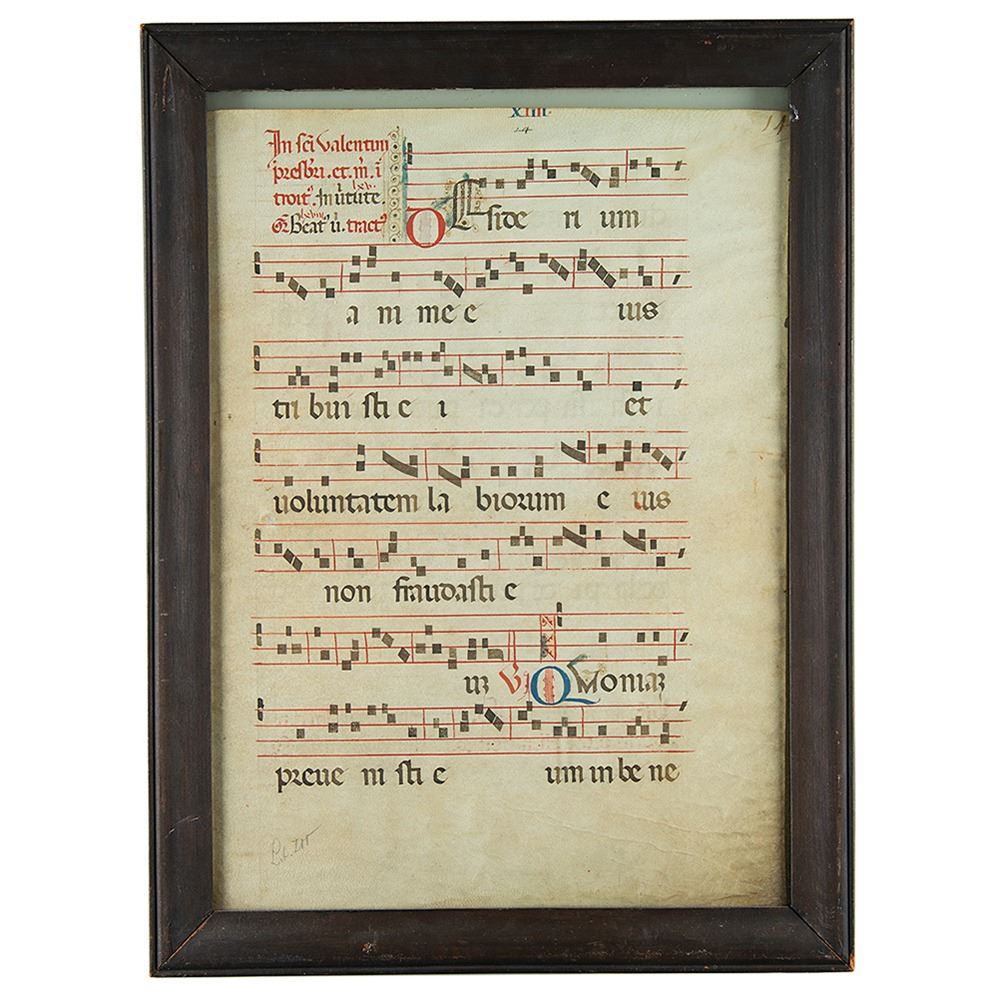 XIIII.
In sci valentini
presbri. et. m. i
troit. In ütute.
Beat ü. tract
DEside ri um
a ni me e ius
tri bui sti e i et
voluntatem la biorum e ius
non fraudasti e
um V Quoniam
preue ni sti e um in be ne